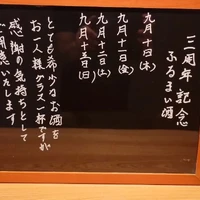 三周年記念
ふるまい酒
九月十日(木)
九月十一日(金)
九月十二日(土)
九月十三日(日)
とても希少なお酒を
お一人様グラス一杯ですが
感謝の気持ちとして
ご用意いたします